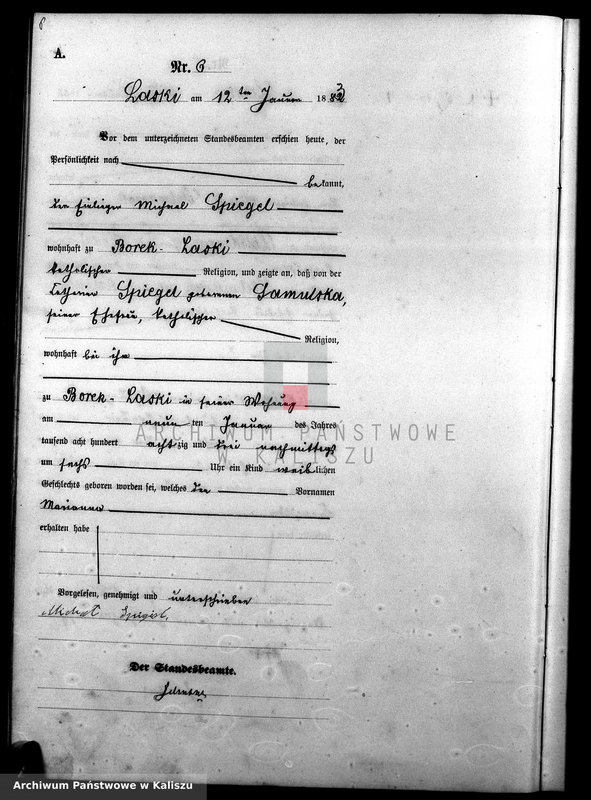 8
A.
Nr. 6
Laski am 12ten Januar 1883
Vor dem unterzeichneten Standesbeamten erschien heute, der
Persönlichkeit nach
bekannt,
der Einlieger Michael Spiegel
wohnhaft zu Borek-Laski
katholischer Religion, und zeigte an, daß von der
Spiegel geborenen Samulska,
seiner Ehefrau, katholischer
Religion,
wohnhaft bei ihm
zu Borek-Laski in seiner Wohnung
am neun ten Januar des Jahres
tausend acht hundert achtzig und drei nachmittags
um sechs Uhr ein Kind weiblichen
Geschlechts geboren worden sei, welches den Vornamen
Marianna
erhalten habe
Vorgelesen, genehmigt und unterschrieben
Der Standesbeamte.
ARCHIWUM PAŃSTWOWE
W KALISZU
Archiwum Państwowe w Kaliszu